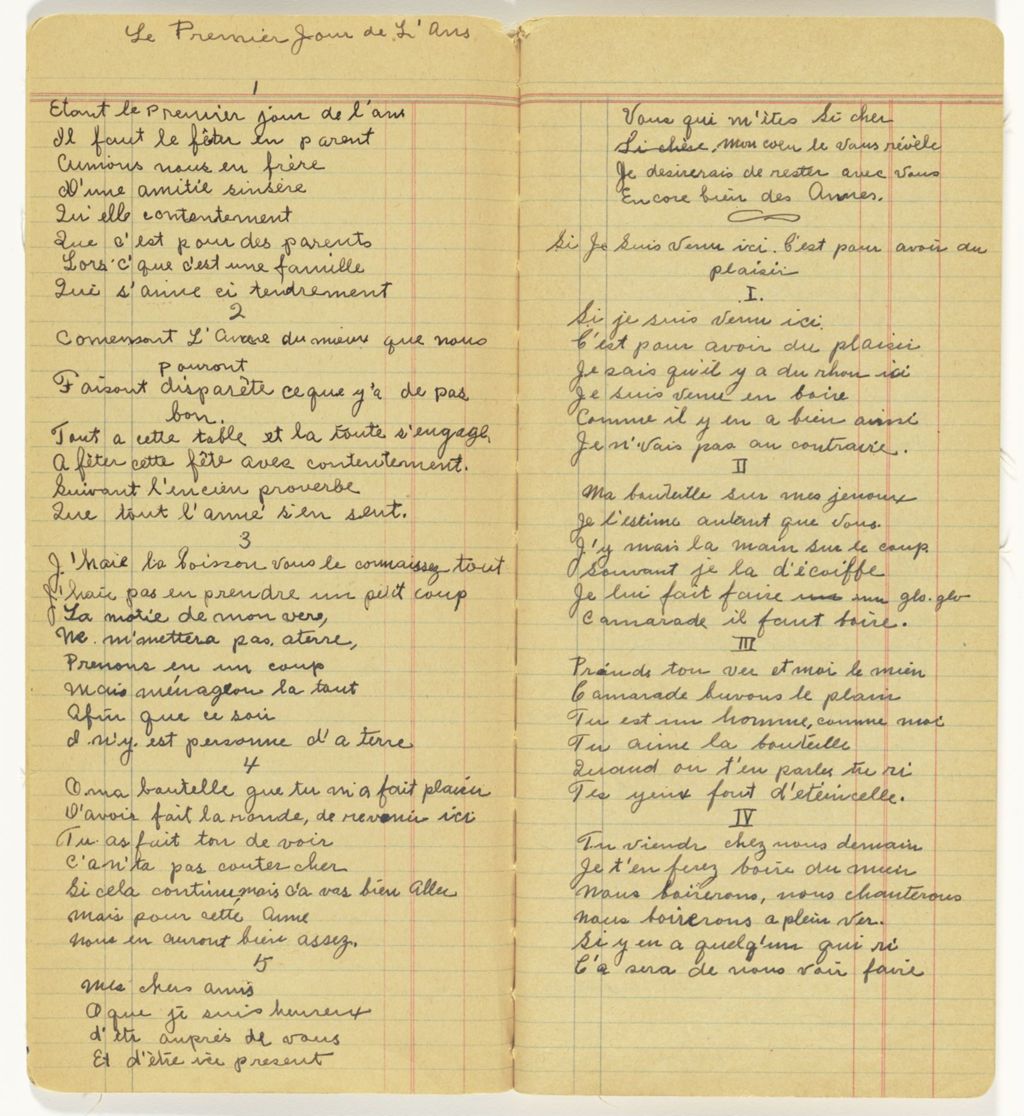 Le Premier Jour de L'Ans
1
Etant le Premier jour de l'ans
Il faut le fêter en parent
Cunions nous en frère
D'une amitie sinsère
Qu'elle contentement
Que c'est pour des parents
Lors c'que c'est une famille
Qui s'aime ci tendrement
2
Comensont L'Anée du mieux que nous
pouront
Faisont disparête ceque y'a de pas
bon.
Tout a cette table et la toute s'engage,
A fêter cette fête avec contentement.
Suivant l'encien proverbe
Que tout l'anné s'en sent.
3
J'haie la Boisson vous le connaissez tout
J'haii pas en prendre un petit coup
La motié de mon vere,
Ne m'mettera pas aterre,
Prenons en un coup
Mais ménageon la tout
Afin que ce soir
I n'y est personne d'a terre
4
O ma boutelle que tu m'a fait plaisir
D'avoir fait la ronde, de revenir ici
Tu as fait ton de voir
C'a n'ta pas couter cher
Si cela continue mais c'a vas bien Aller
Mais pour cette Anne
Nous en auront bien assez.
5
Mes chers amis
O que je suis heureux
d'être auprès de vous
Et d'être ici present
Vous qui m'êtes Si cher
Si chèse, mon coeu le vous révèle
Je desirerais de rester avec Vous
Encore bien des Annes.
Si Je Suis Venu ici. C'est pour avoir du
plaisir
I.
Si je suis Venu ici.
C'est pour avoir du plaisir
Je sais qu'il y a du rhon ici
Je suis venu en boire
Comme il y en a bien ainsi
Je n'Vais pas au contraire.
II
Ma bouteille sur mes jenoux
Je l'estime autant que Vous.
J'y mais la main sur le coup
Souvant je la d'écoiffe
Je lui fait faire un glo. glo
Camarade il faut boire.
III
Prends ton ver et moi le mien
Camarade buvons le plain
Tu est un homme, comme moi
Tu aime la bouteille
Quand on t'en parles tu ri
Tes yeux font d'eteincelle.
IV
Tu viendr chez nous demain
Je t'en ferez boire du mien
Nous boirerons, nous chanterons
Nous boirerons a plein Ver.
Si y en a quelq'un qui ri
C'a sera de nous voir faire